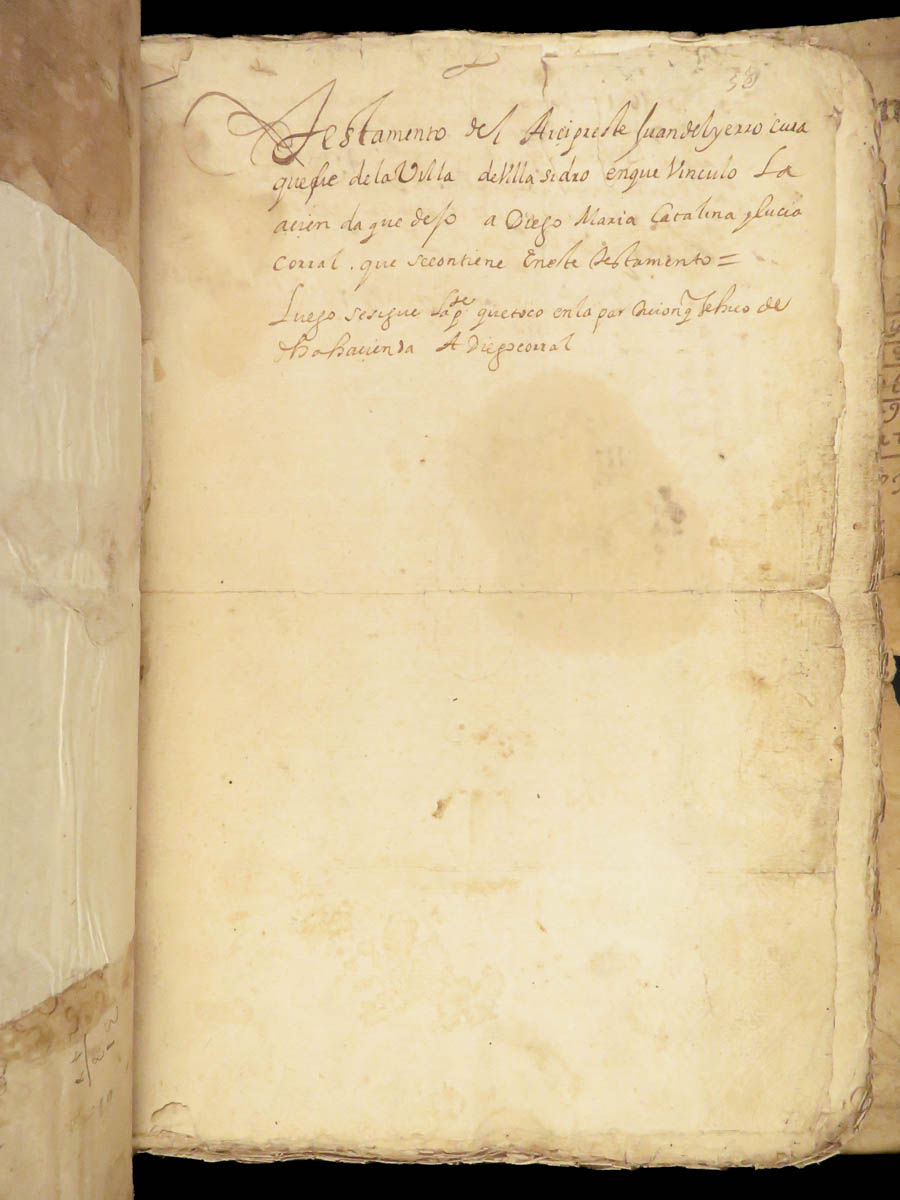 38
Testamento del Arcipreste Juan del yerro cura
que fue de la Villa de Villasidro en que Vinculo La
acienda que dejo a Diego Maria Catalina y lucia
corral. que se contiene En este testamento =
Luego se sigue la pte que toco en la particion q se hiço de
dha hacienda A Diego corral